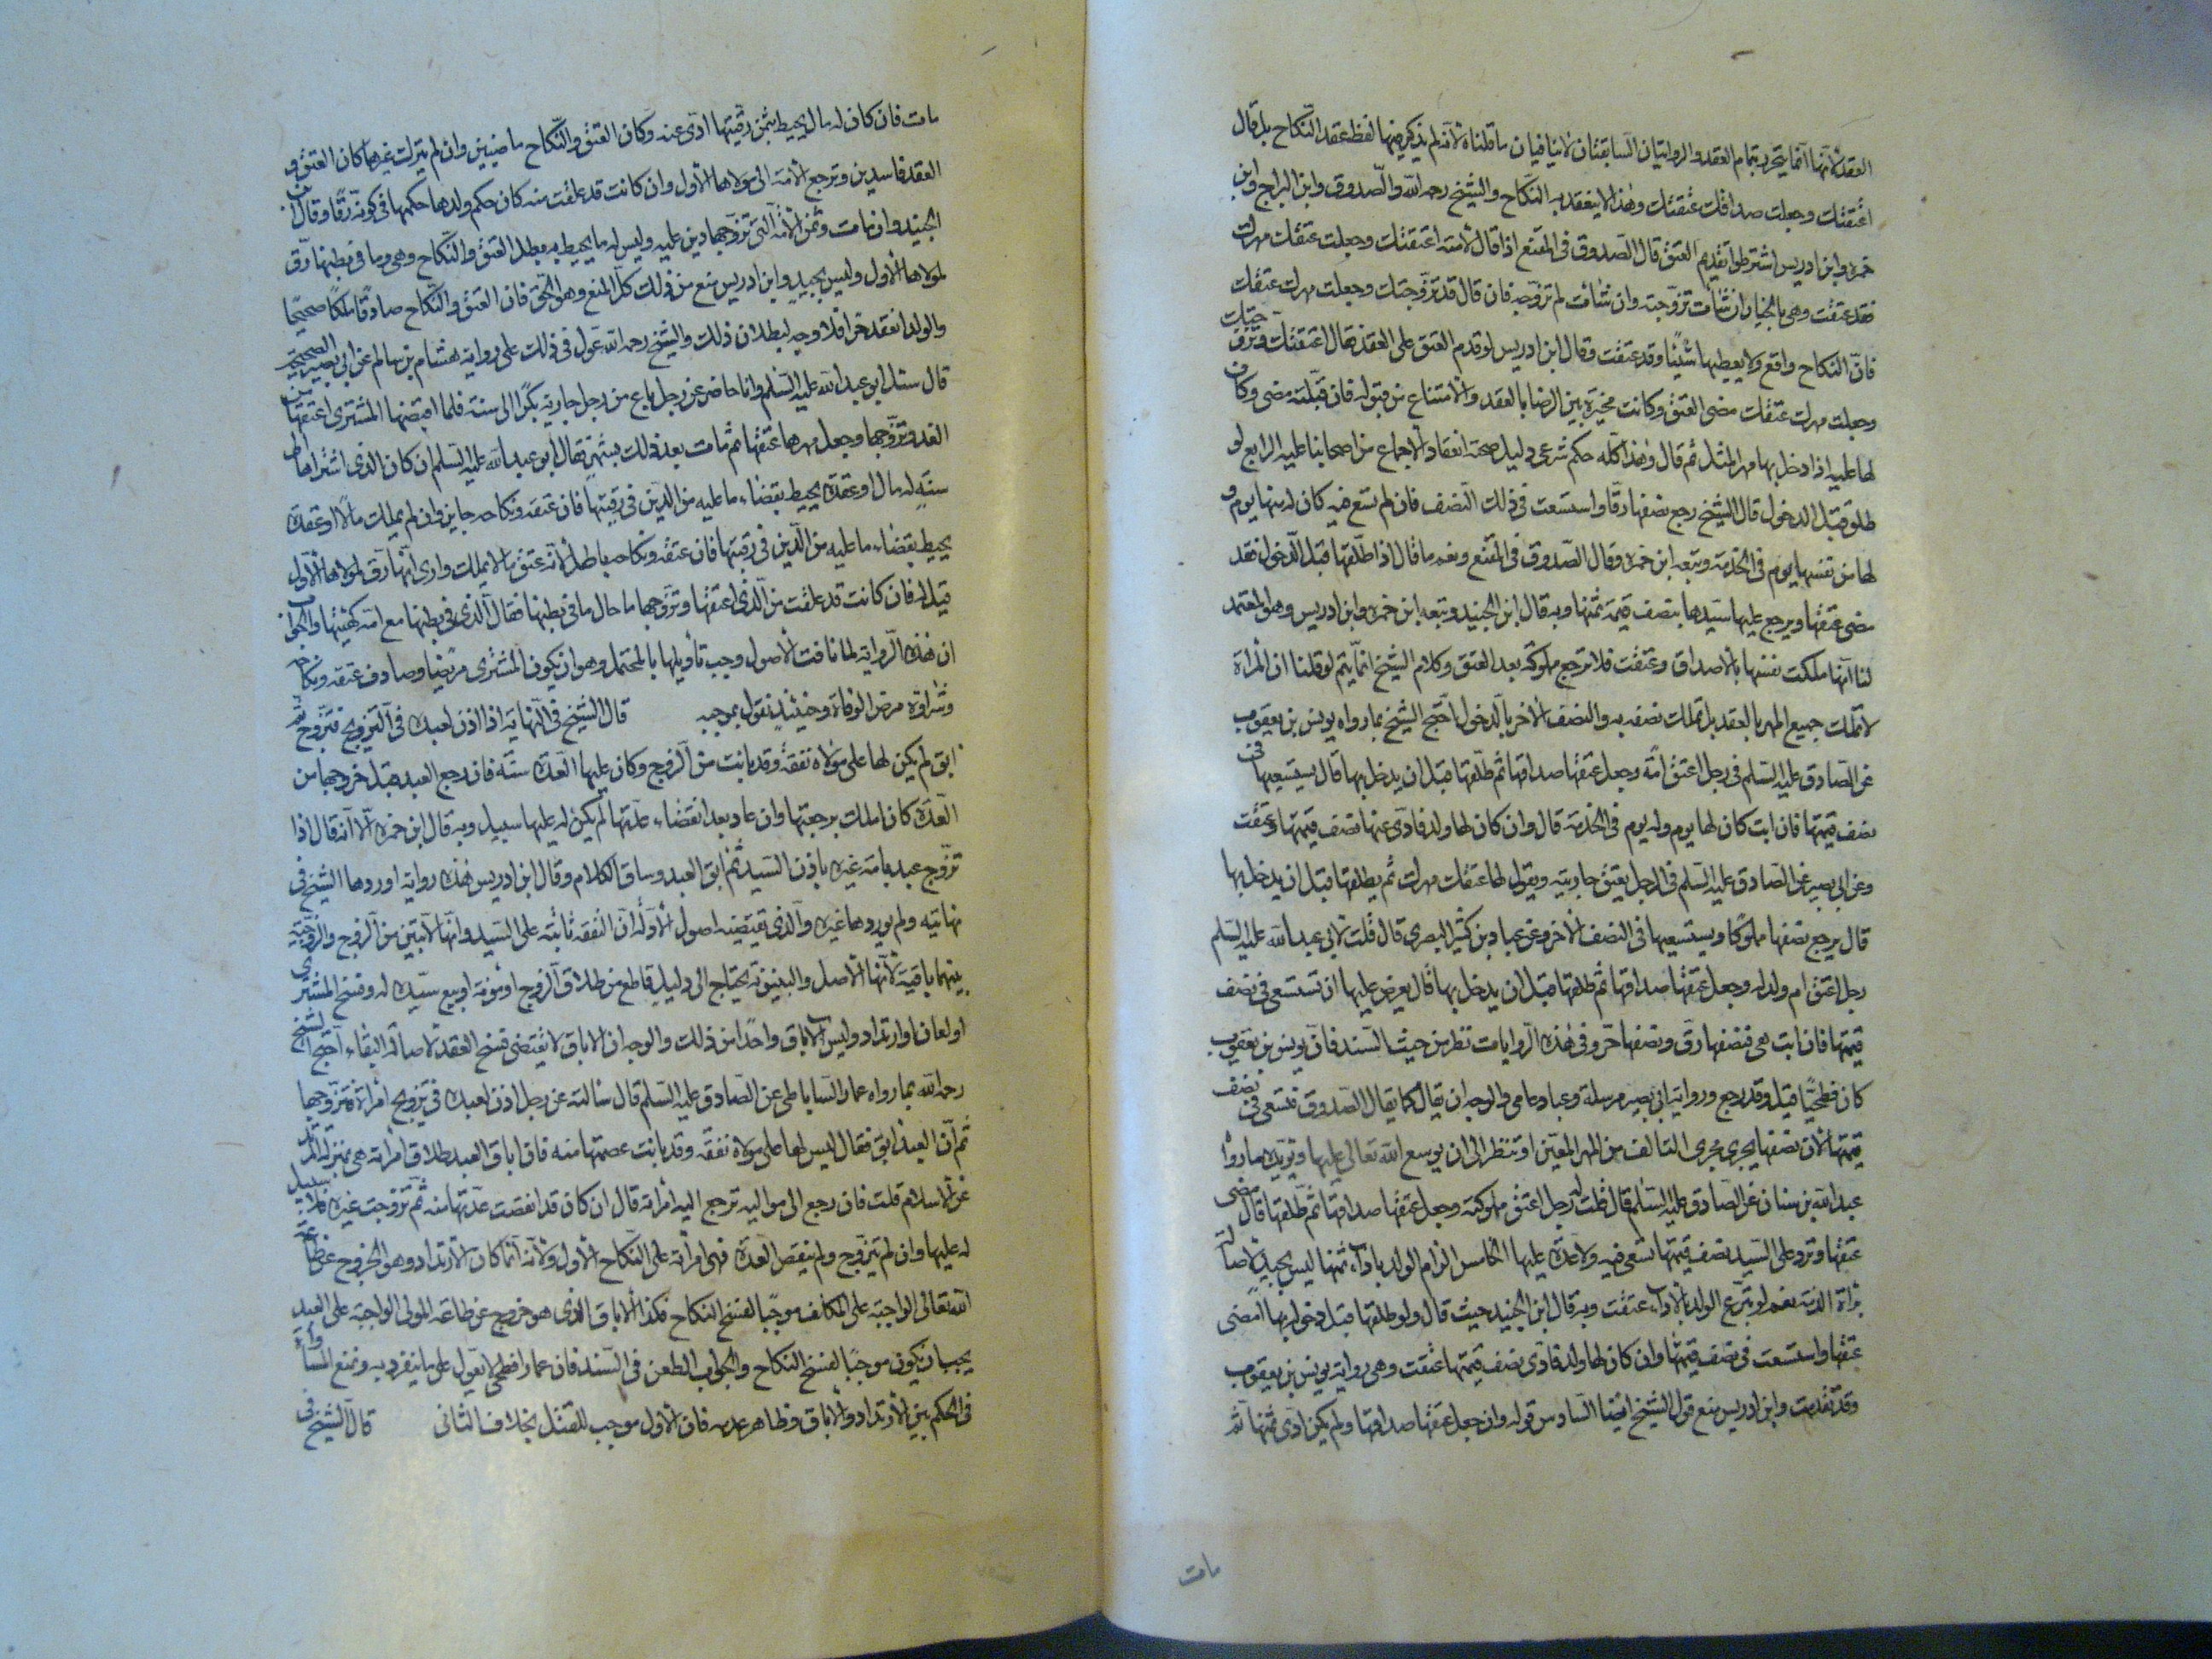 العقد لانها انما يتحرر بتمام العقد والروايتان السابقتان لا ينافيان ما قلناه لانه لم يذكر فيها لفظ عقد النكاح بل قال
اعتقتك وجعلت صداقك عتقك وهذا لا ينعقد به النكاح والشيخ رحمه الله والصدوق وابن البراج وابن
حمزه وابن ادريس اشترطوا تقديم العتق قال الصدوق في المقنع اذا قال لامته اعتقتك وجعلت عتقك مهرك
فقد عتقت وهي بالخيار ان شاءت تزوجته وان شاءت لم تزوجه فان قال قد تزوجتك وجعلت مهرك عتقك
فان النكاح واقع ولا يعطيها شيئا وقد عتقت وقال ابن ادريس لو قدم العتق على العقد فقال اعتقتك وتزوجتك
وجعلت مهرك عتقك مضى العتق وكانت مخيرة بين الرضا بالعقد والامتناع من قبوله فان قبلته مضى وكان
لها عليه اذا دخل بها مهر المثل ثم قال وهذا كله حكم شرعي دليل صحة انعقاد الاجماع من اصحابنا عليه الرابع لو
طلق قبل الدخول قال الشيخ رجع نصفها رقا واستسعت في ذلك النصف فان لم تسع فيه كان له منها يوم و
لها من نفسها يوم في الخدمة وتبعه ابن حمزه وقال الصدوق في المقنع ونعم ما قال اذا طلقها قبل الدخول فقد
مضى عتقها ويرجع عليها سيدها بنصف قيمة ثمنها وبه قال ابن الجنيد وتبعه ابن حمزه وابن ادريس وهو المعتمد
لنا انها ملكت نفسها بالاصداق وعتقت فلا ترجع مملوكة بعد العتق وكلام الشيخ انما يتم لو قلنا ان المراة
لا تملك جميع المهر بالعقد بل تملك نصفه به والنصف الاخر بالدخول احتج الشيخ بما رواه يونس بن يعقوب
عن الصادق عليه السلم في رجل اعتق امة وجعل عتقها صداقها ثم طلقها قبل ان يدخل بها قال يستسعيها في
نصف قيمتها فان ابت كان لها يوم وله يوم في الخدمة قال وان كان لها ولد فادى عنها نصف قيمتها وعتقت
وعن ابي بصير عن الصادق عليه السلم في الرجل يعتق جاريته ويقول لها عتقك مهرك ثم يطلقها قبل ان يدخل بها
قال يرجع نصفها مملوكا ويستسعيها في النصف الاخر وعن عباد بن كثير البصري قال قلت لابي عبد الله عليه السلم
رجل اعتق ام ولد له وجعل عتقها صداقها ثم طلقها قبل ان يدخل بها قال يعرض عليها ان تستسعي في نصف
قيمتها فان ابت هي فنصفها رق ونصفها حر وفي هذه الروايات نظر من حيث السند فان يونس بن يعقوب
كان فطحيا قيل وقد رجع ورواية ابي بصير مرسلة وعباد عامي والوجه ان يقال كما يقال الصدوق فتسعى في نصف
قيمتها لان نصفها يجري مجرى التالف من المهر المعين او تنظر الى ان يوسع الله تعالى عليها ويؤيده ما رواه
عبد الله بن سنان عن الصادق عليه السلم قال قلت له رجل اعتق مملوكته وجعل عتقها صداقها ثم طلقها قال مضى
عتقها وترد على السيد نصف قيمتها تسعى فيه ولا عدة عليها الخامس الزام الولد باداء ثمنها ليس بجيد لاصالة
براة الذمة نعم لو تبرع الولد بالاداء عتقت وبه قال ابن الجنيد حيث قال ولو طلقها قبل دخوله بها امضى
عتقها واستسعت في نصف قيمتها وان كان لها ولد فادى نصف قيمتها عتقت وهي رواية يونس بن يعقوب
وقد تقدمت وابن ادريس منع قول الشيخ ايضا السادس قوله وان جعل عتقها صداقها ولم يكن ادى ثمنها ثم
مات
مات فان كان له مال يحيط بثمن رقبتها ادى عنه وكان العتق والنكاح ماضيين وان لم يترك غيرها كان العتق و
العقد فاسدين وترجع الامة الى مولاها الاول وان كانت قد علقت منه كان حكم ولدها حكمها في كونه رقا وقال ابن
الجنيد وان مات وثمن الامة التي تزوجها دين عليه وليس له ما يحيط به بطل العتق والنكاح وهي وما في بطنها رق
لمولاها الاول وليس بجيد وابن ادريس منع من ذلك كل المنع وهو الحق فان العتق والنكاح صادفا ملكا صحيحا
والولد انعقد حرا فلا وجه لبطلان ذلك والشيخ رحمه الله عول في ذلك على رواية هشام بن سالم عن ابي بصير الصحيحة
قال سئل ابو عبد الله عليه السلم وانا حاضر عن رجل باع من رجل جارية بكرا الى سنة فلما اقبضها المشتري اعتقها من
الغد وتزوجها وجعل مهرها عتقها ثم مات بعد ذلك بشهر فقال ابو عبد الله عليه السلم ان كان الذي اشتراها الى
سنة له مال او عقدة يحيط بقضاء ما عليه من الدين في رقبتها فان عتقه ونكاحه جايز وان لم يملك مالا او عقدة
يحيط بقضاء ما عليه من الدين في رقبتها فان عتقه ونكاحه باطل لانه عتق ما لا يملك وارى انها رق لمولاها الاول
قيل له فان كانت قد علقت من الذي اعتقها وتزوجها ما حال ما في بطنها فقال الذي في بطنها مع امه كهيئتها والجواب
ان هذه الرواية لما نافت الاصول وجب تاويلها بالمحتمل وهو ان يكون المشتري مريضا وصادف عتقه ونكاحه
وشراؤه مرض الوفاة وحينئذ نقول بموجبه قال الشيخ في النهاية اذا اذن لعبده في التزويج فتزوج ثم
ابق لم يكن لها على مولاه نفقة وقد بانت من الزوج وكان عليها العدة منه فان رجع العبد قبل خروجها من
العدة كان املك برجعتها وان عاد بعد انقضاء عدتها لم يكن له عليها سبيل وبه قال ابن حمزه الا انه قال اذا
تزوج عبد بامة غيره باذن السيد ثم ابق العبد وساق الكلام وقال ابن ادريس هذه رواية اوردها الشيخ في
نهايته ولم يوردها غيره والذي تقتضيه اصول الادلة ان النفقة ثابتة على السيد وانها لا تبين من الزوج والزوجية
بينهما باقية لانها الاصل والبينونة يحتاج الى دليل قاطع من طلاق الزوج او موته او بيع سيده له وفسخ المشتري
او لعان او ارتداد وليس الاباق واحدا من ذلك والوجه ان الاباق لا يقتضي فسخ العقد لاصالة البقاء احتج الشيخ
رحمه الله بما رواه عمار الساباطي عن الصادق عليه السلم قال سالته عن رجل اذن لعبده في تزويج امراة فتزوجها
ثم ان العبد ابق فقال ليس لها على مولاه نفقة وقد بانت عصمتها منه فان اباق العبد طلاق امراته هي بمنزلة المرتد
عن الاسلام قلت فان رجع الى مواليه ترجع اليه امراته قال ان كان قد انقضت عدتها منه ثم تزوجت غيره فلا سبيل
له عليها وان لم تتزوج ولم ينقض العدة فهي امراته على النكاح الاول ولانه انما كان الارتداد وهو الخروج عن طاعة
الله تعالى الواجبة على المكلف موجبا لفسخ النكاح فكذا الاباق الذي هو خروج عن طاعة المولى الواجبة على العبد
يجب ان يكون موجبا لفسخ النكاح والجواب الطعن في السند فان عمارا فطحي لا يعول على ما ينفرد به ونمنع المساواة
في الحكم بين الارتداد والاباق وظاهر عدمه فان الاول موجب للقتل بخلاف الثاني قال الشيخ في